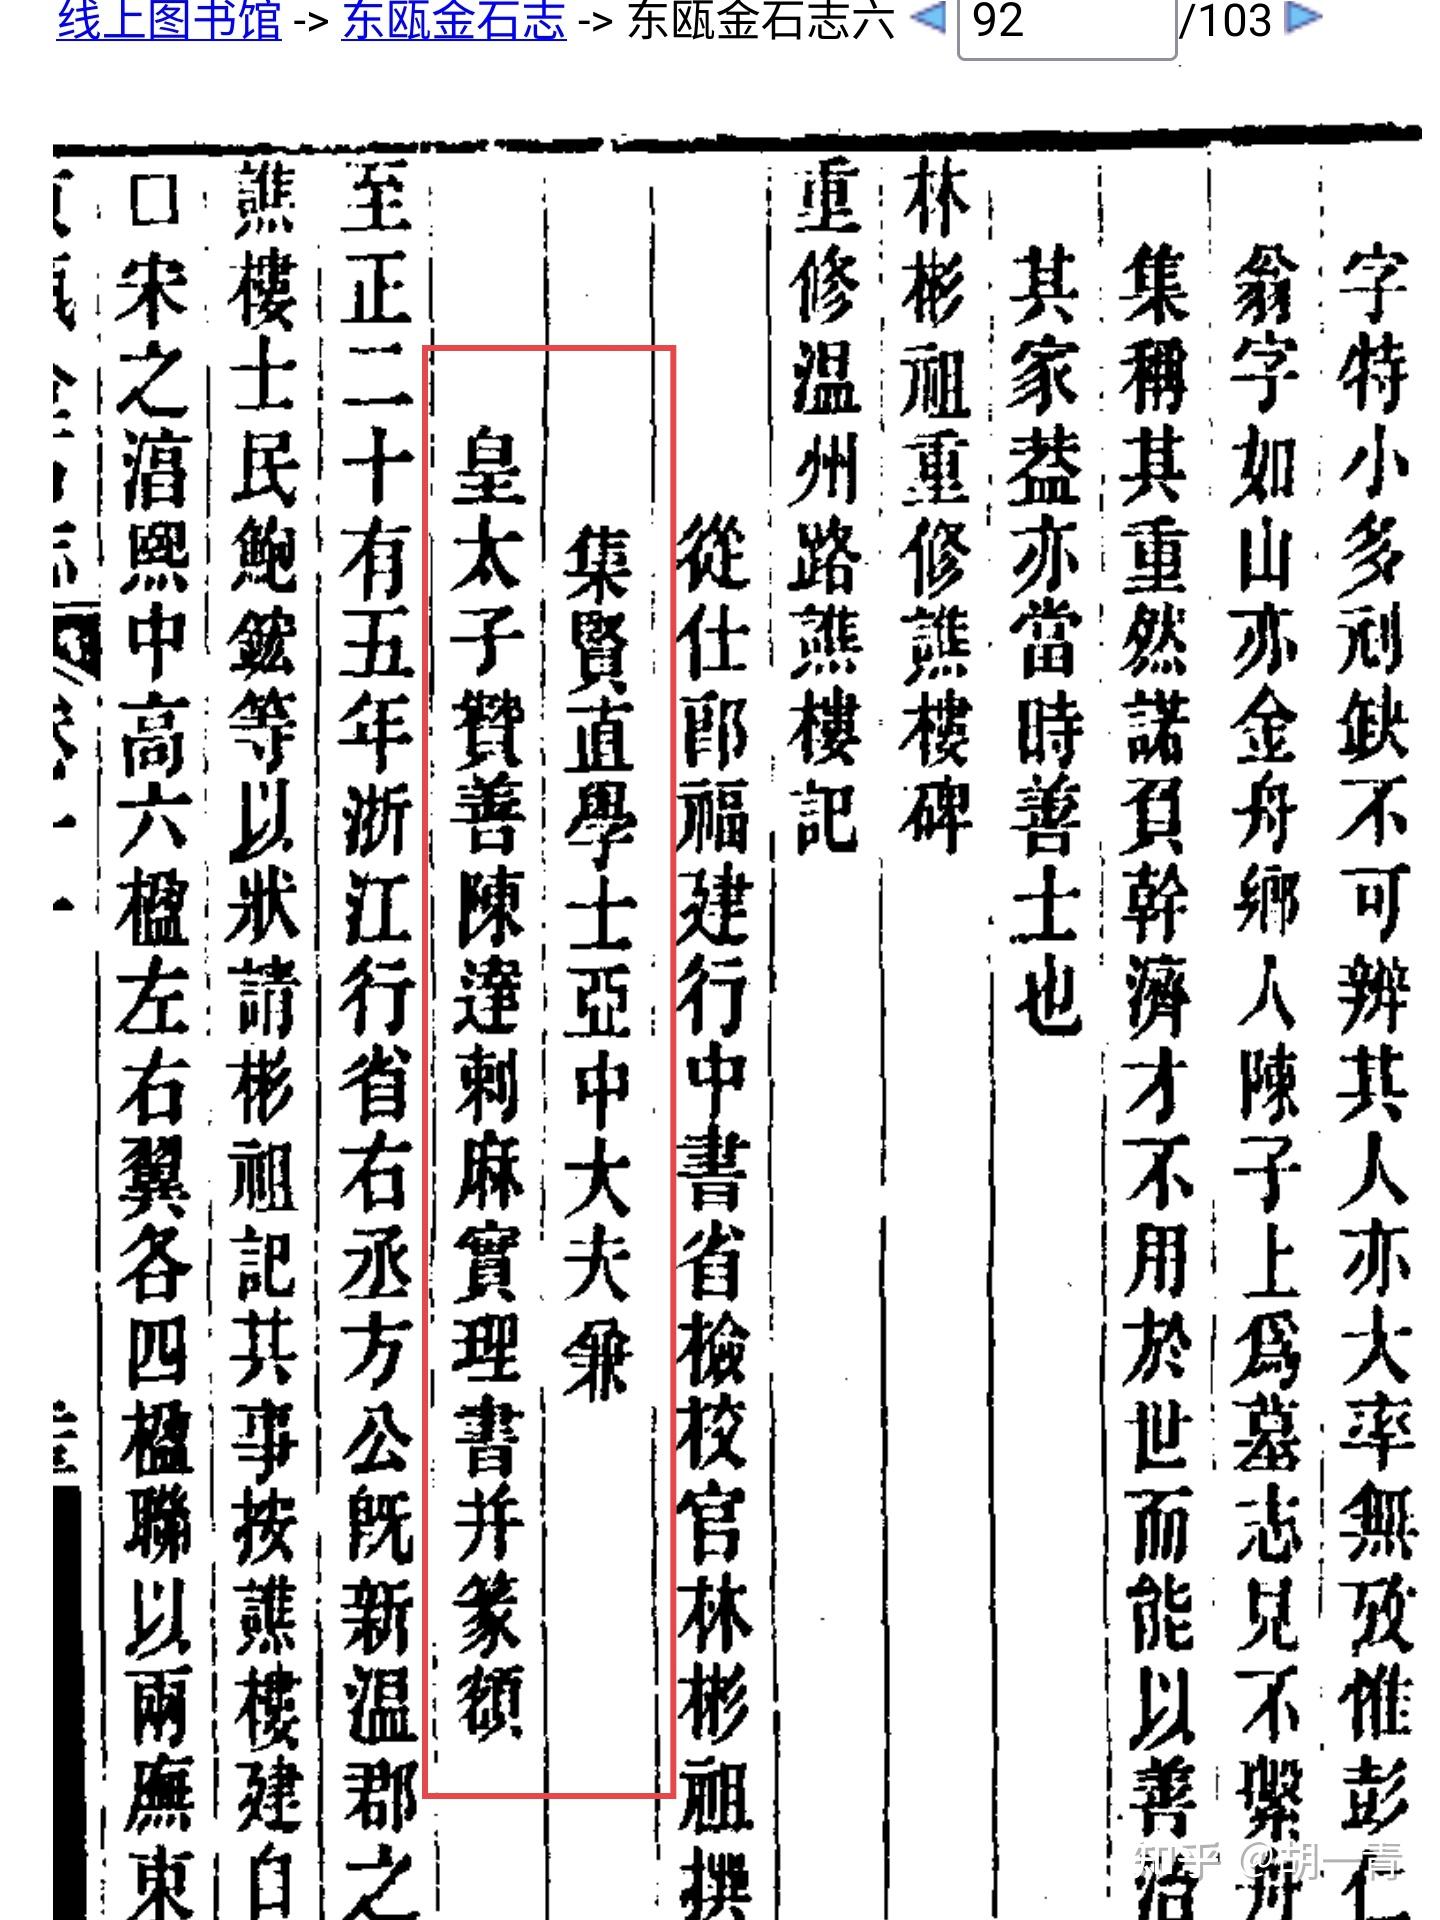 线上图书馆 -> 东瓯金石志 -> 东瓯金石志六 92 /103
字特小多刓缺不可辨其人亦大率無攷惟彭仁
翁字如山亦金舟鄉人陳子上爲墓志見不繫舟
集稱其重然諾負幹濟才不用於世而能以善治
其家葢亦當時善士也
林彬祖重修譙樓碑
重修温州路譙樓記
從仕郎福建行中書省檢校官林彬祖撰
集賢直學士亞中大夫兼
皇太子贊善陳達剌麻實理書并篆額
至正二十有五年浙江行省右丞方公既新温郡之
譙樓士民鮑鋐等以狀請彬祖記其事按譙樓建自
□宋之淳熙中高六楹左右翼各四楹聯以兩廡東
知乎 @胡一青